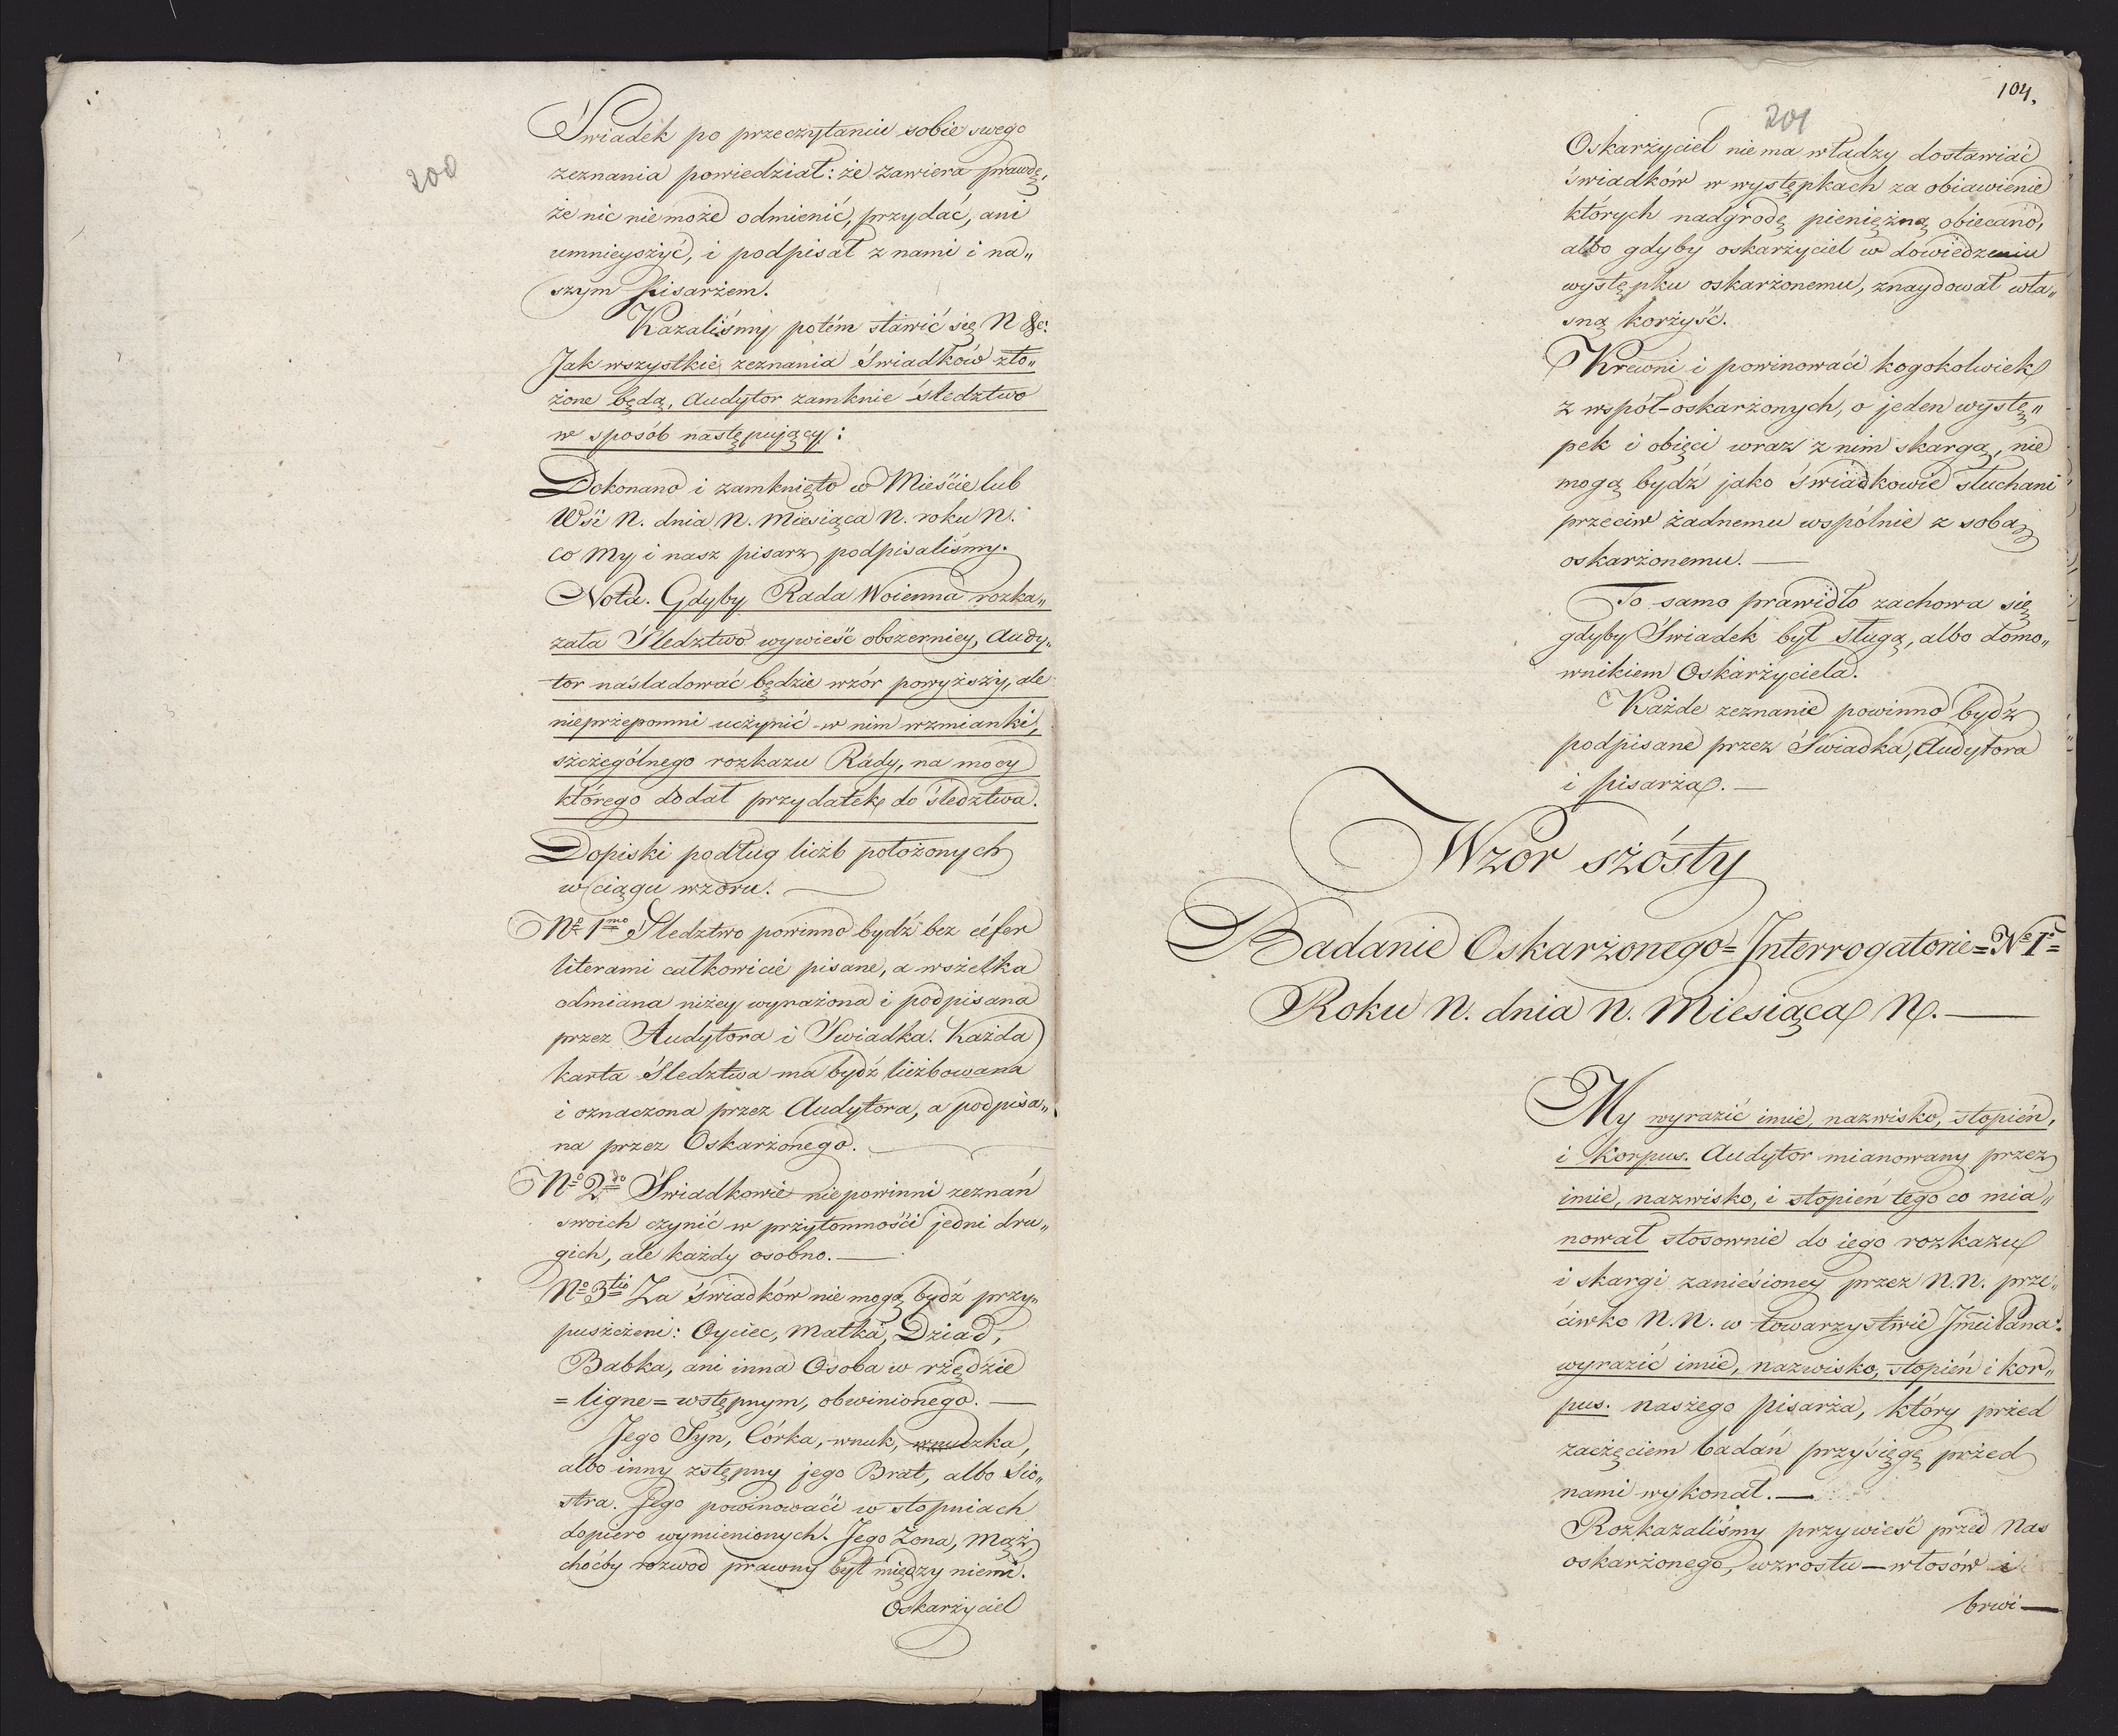 200
Świadek po przeczytaniu sobie swego
zeznania powiedział: że zawiera prawdę,
że nic nie może odmienić, przydać, ani
umnieyszyć, i podpisał z nami i na„
szym Pisarżem.
Kazaliśmy potém stawić się N &c:
Jak wszystkie zeznania Świadków zło„
żone będą, Audytor zamknie śledztwo
w sposób następujący:
Dokonano i zamknięto w Mieście lub
Wsi N. dnia N. Miesiąca N. roku N.
co My i nasz pisarz podpisaliśmy.
Nota. Gdyby Rada Woienna rozka„
zała Śledztwo wywieść obszerniey, Audy„
tor naśladować będzie wzór powyższy, ale
nieprżepomni uczynić w nim wzmianki,
szczególnego rozkazu Rady, na mocy
którego dodał przydatek do śledztwa.
Dopiski podług liczb położonych
w ciągu wzoru.
Nº 1mo Śledztwo powinno bydź bez céfer
literami całkowicie pisane, a wszelka
odmiana niżey wyrażona i podpisana
przez Audytora i Świadka. Każda
karta Śledztwa ma bydź liczbowana
i oznaczona przez Audytora, a podpisa„
na przez Oskarżonego.
Nº 2do Świadkowie niepowinni zeznań
swoich czynić w przytomności jedni dru„
gich, ale każdy osobno.
Nº 3tio Za świadków nie mogą bydź przy„
puszczeni: Oyciec, Matka, Dziad,
Babka, ani inna Osoba w rzędzie
=ligne= wstępnym, obwinionego.
Jego Syn, Córka, wnuk, wnuczka,
albo inny zstępny jego Brat, albo Sio„
stra. Jego powinowaći w stopniach
dopiero wymienionych. Jego Żona, Mąż,
choćby rozwod prawny był między niemi.
Oskarżyciel
104.
201
Oskarżyciel nie ma władzy dostawiać
świadków w występkach za obiawienie
których nadgrodę pieniężną obiecano,
albo gdyby oskarżyciel w dowiedzeniu
występku oskarżonemu, znaydował wła„
sną korżyść.
Krewni i powinowaći kogokolwiek
z wspól-oskarżonych, o jeden wystę„
pek i obięci wraz z nim skargą, nie
mogą bydź jako świadkowie słuchani
przeciw żadnemu wspólnie z sobą
oskarżonemu.
To samo prawidło zachowa się
gdyby Świadek był sługą, albo domo„
wnikiem Oskarżyciela.
Każde zeznanie powinno bydź
podpisane przez Świadka, Audytora
i pisarża.
Wzór szósty
Badanie Oskarżonego=Interrogatorie=Nº 1º=
Roku N. dnia N. Miesiąca N.
My wyrazić imie, nazwisko, stopień,
i Korpus. Audytor mianowany przez
imie, nazwisko, i stopień tego co mia„
nował stosownie do iego rozkazu
i skargi zaniesioney przez N.N. prze„
ciwko N.N. w towarzystwie Jmci Pana:
wyrazić imie, nazwisko, stopień i kor„
pus. naszego pisarża, który przed
zaczęciem badań przysięgę przed
nami wykonał.
Rozkazaliśmy przywieść przed Nas
oskarżonego, wzrostu — włosów i
brwi —